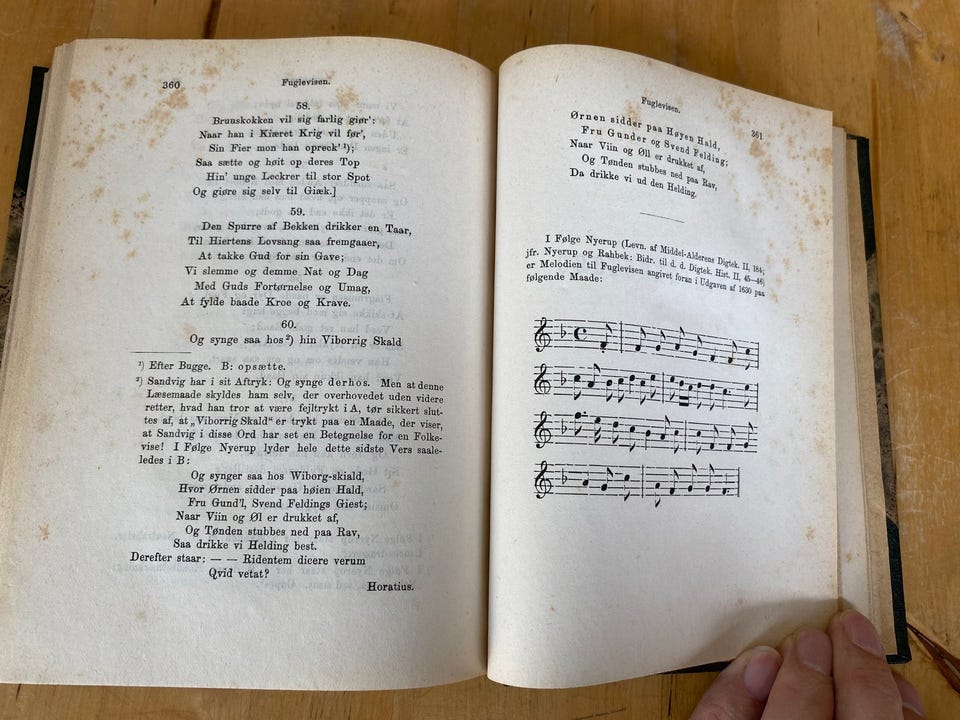 360 Fuglevisen.
58.
Brunskokken vil sig farlig giør':
Naar han i Kiæret Krig vil før',
Sin Fier mon han opreck' ¹);
Saa sætte og høit op deres Top
Hin' unge Leckrer til stor Spot
Og giøre sig selv til Giæk.]
59.
Den Spurre af Bekken drikker en Taar,
Til Hiertens Lovsang saa fremgaaer,
At takke Gud for sin Gave;
Vi slemme og demme Nat og Dag
Med Guds Fortørnelse og Umag,
At fylde baade Kroe og Krave.
60.
Og synge saa hos ²) hin Viborrig Skald
¹) Efter Bugge. B: opsætte.
²) Sandvig har i sit Aftryk: Og synge derhos. Men at denne
Læsemaade skyldes ham selv, der overhovedet uden videre
retter, hvad han tror at være fejltrykt i A, tør sikkert slut-
tes af, at „Viborrig Skald“ er trykt paa en Maade, der viser,
at Sandvig i disse Ord har set en Betegnelse for en Folke-
vise! I Følge Nyerup lyder hele dette sidste Vers saale-
ledes i B:
Og synger saa hos Wiborg-skiald,
Hvor Ørnen sidder paa høien Hald,
Fru Gund'l, Svend Feldings Giest;
Naar Viin og Øl er drukket af,
Og Tønden stubbes ned paa Rav,
Saa drikke vi Helding best.
Derefter staar: — — Ridentem dicere verum
Qvid vetat?
Horatius.
Fuglevisen. 361
Ørnen sidder paa Høyen Hald,
Fru Gunder og Svend Felding;
Naar Viin og Øll er drukket af,
Og Tønden stubbes ned paa Rav,
Da drikke vi ud den Helding.
I Følge Nyerup (Levn. af Middel-Alderens Digtek. II, 184;
jfr. Nyerup og Rahbek: Bidr. til d. d. Digtek. Hist. II, 45—46)
er Melodien til Fuglevisen angivet foran i Udgaven af 1630 paa
følgende Maade: